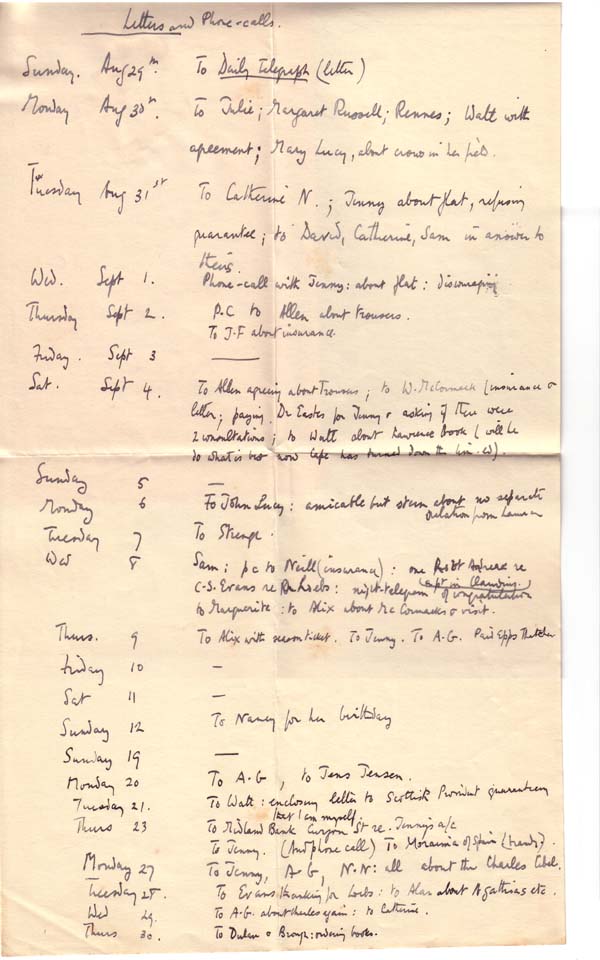 Letters and Phone-calls.
Sunday. Aug 29th. To Daily Telegraph (letter)
Monday Aug 30th. To Julie; Margaret Russell; Rennes; Walt with
agreement; Mary Lucy, about crows in her field.
Tuesday Aug 31st To Catherine N.; Jenny about flat, refusing
guarantee; to David, Catherine, Sam in answer to
theirs.
Wed. Sept 1. Phone-call with Jenny: about flat: discouraging
Thursday Sept 2. P.C to Allen about trousers.
To J.F about insurance.
Friday. Sept 3 —
Sat. Sept 4. To Allen agreeing about trousers; to W. McCormack (insurance &
letter; paying Dr Eastes for Jenny & asking if there were
2 consultations; to Watt about Lawrence book (will he
do what is best now Cape has turned down the
Sunday 5 —
Monday 6 To John Lucy: amicable but stern about no separate
from
Tuesday 7 To
Wed 8 Sam; pc to Neill (insurance): one re
C-S. Evans re Loebs: night-telegram of congratulation
to Marguerite: to Alix about McCormacks & visit.
Thurs. 9 To Alix with season ticket. To Jenny. To A.G. Paid Epps Thatcher
Friday 10 —
Sat 11 —
Sunday 12 To Nancy for her birthday
Sunday 19 —
Monday 20 To A-G, to Jens Jensen.
Tuesday 21. To Watt: enclosing letter to Scottish Provident guaranteeing
that I am myself.
Thurs 23 To Midland Bank Curzon St re. Jenny's a/c
To Jenny. (And phone call) To of Spain
Monday 27 To Jenny, A-G, N.N: all about the Charles
Tuesday 28. To Evans thanking for Loebs: to Alan about Agathias etc.
Wed 29. To A-G. about again: to Catherine.
Thurs 30. To & : ordering books.